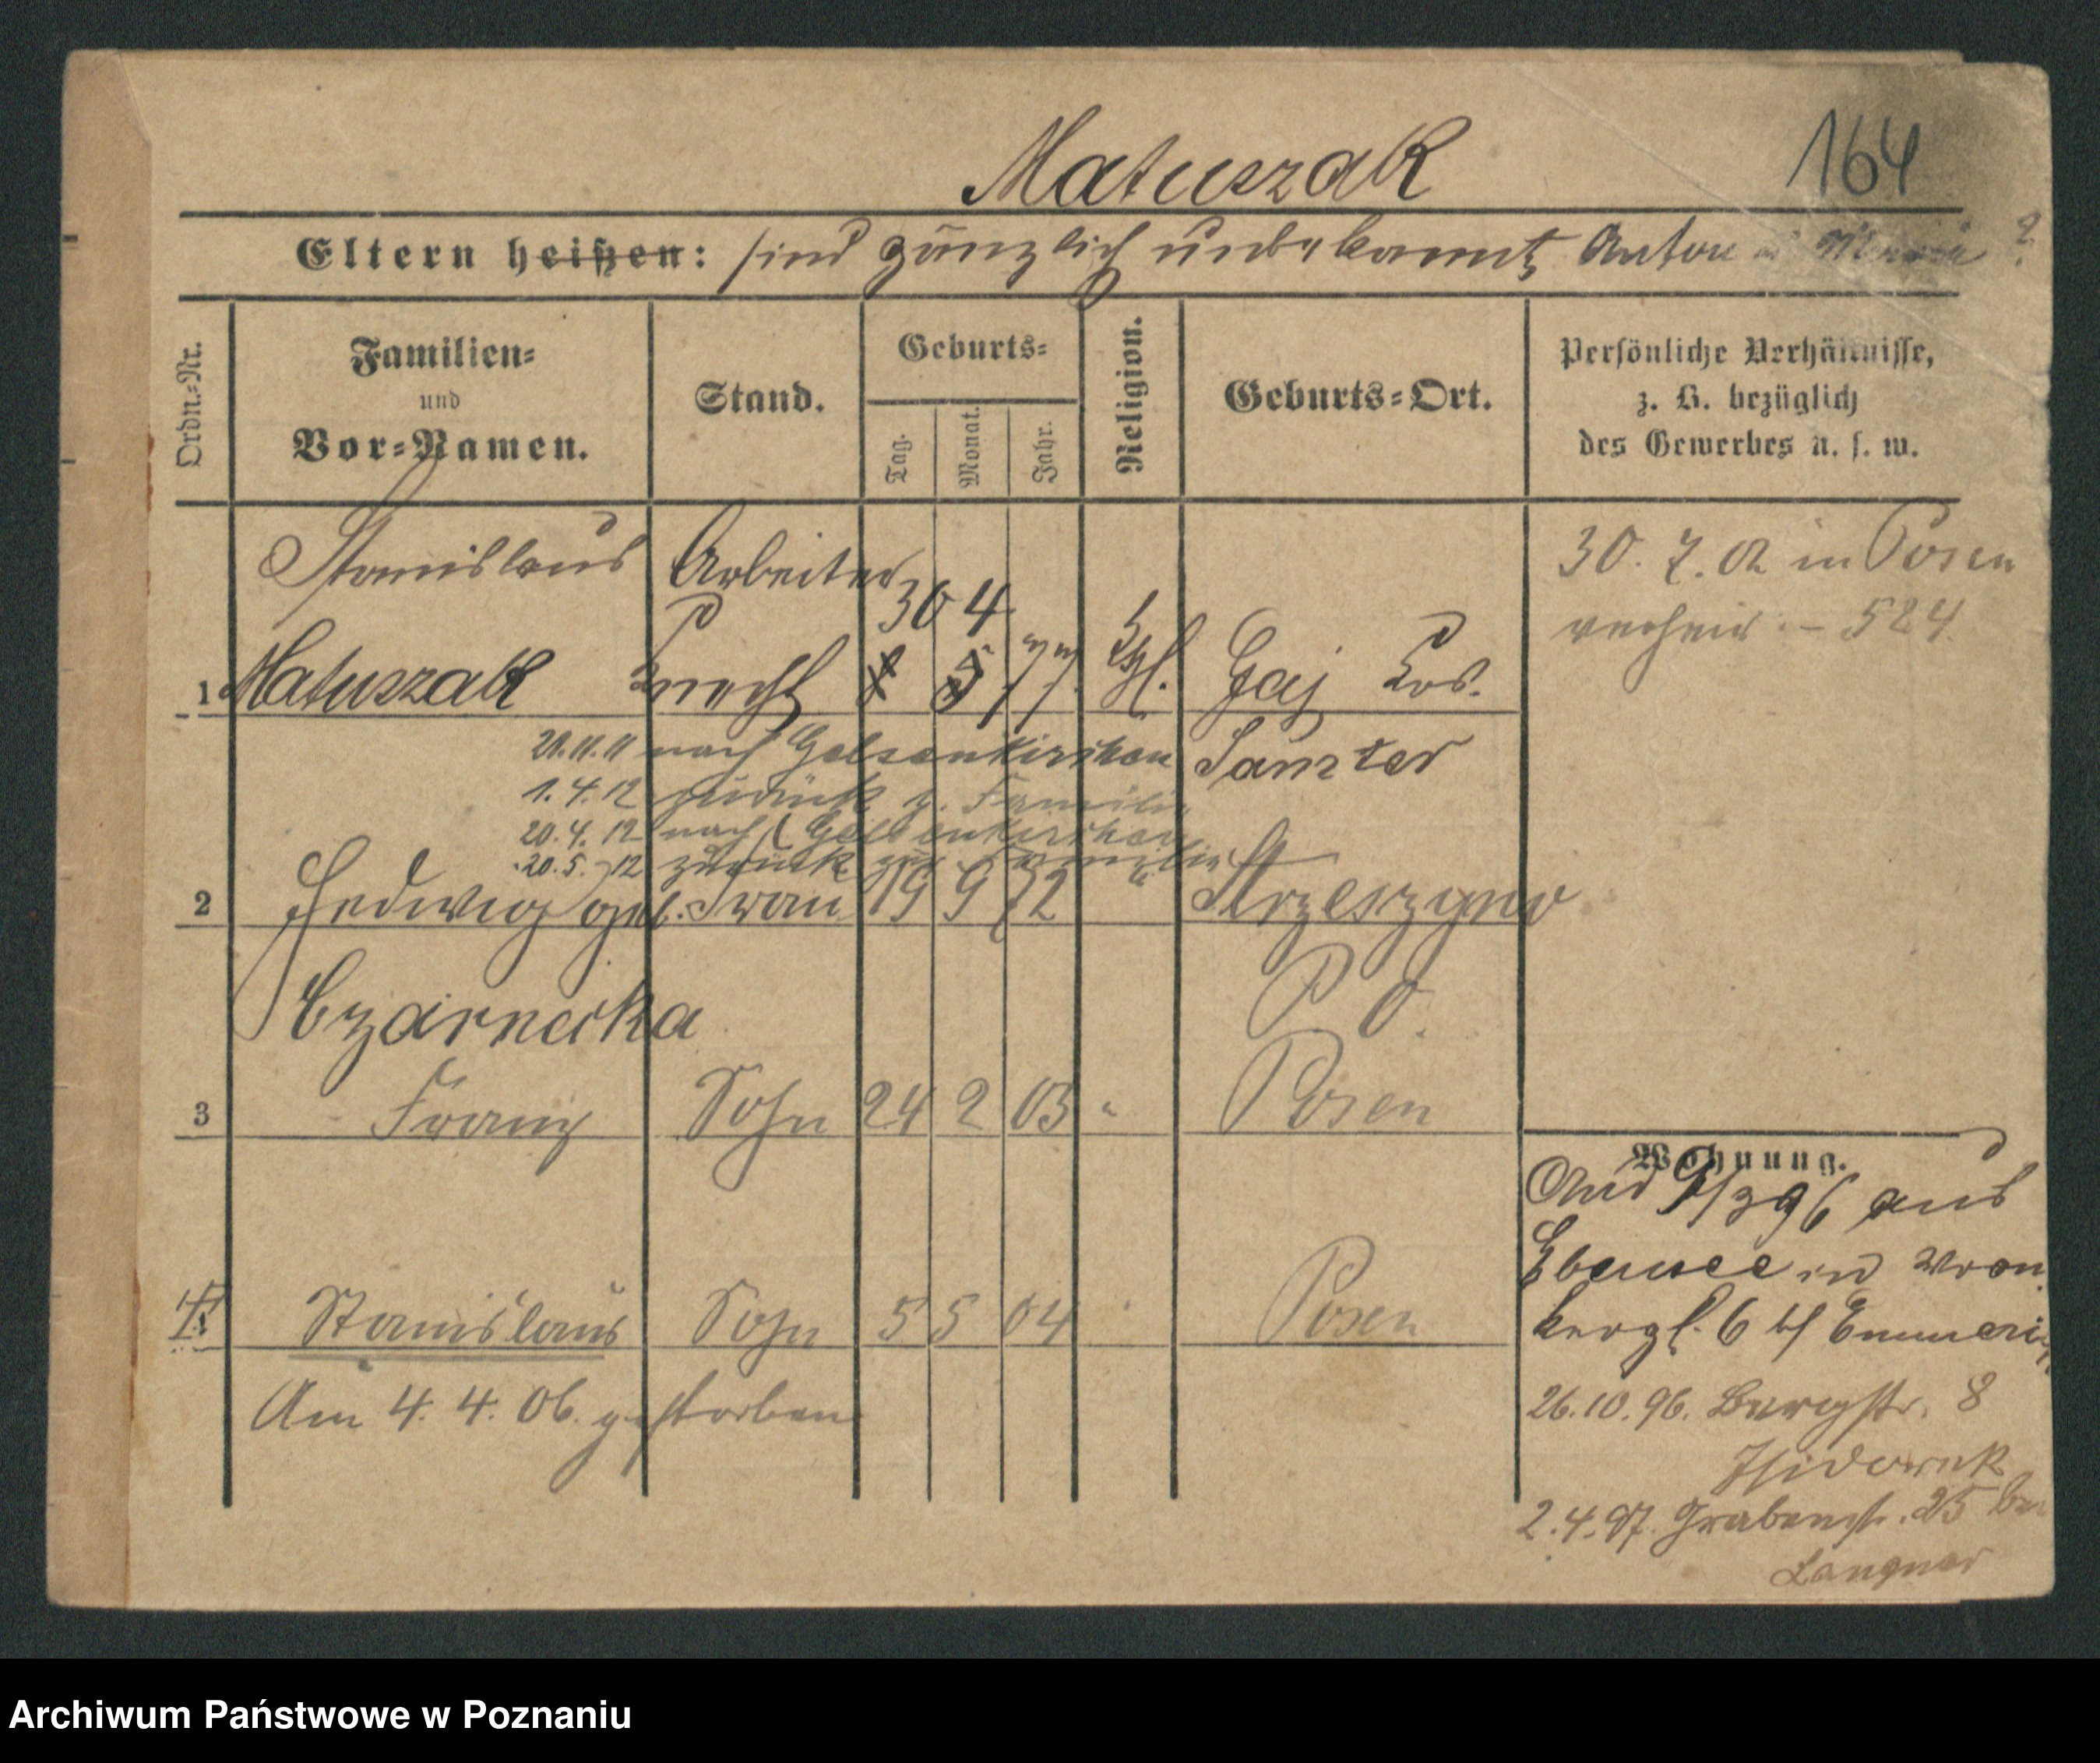 Matuszak
164
Eltern heißen: sind gänzlich unbekannt Anton u Maria ?
Ordn.-Nr.
Familien-
und
Vor-Namen.
Stand.
Geburts-
Tag.
Monat.
Jahr.
Religion.
Geburts-Ort.
Persönliche Verhältnisse,
z. B. bezüglich
des Gewerbes u. s. w.
Stanislaus Arbeiter
30 4
30. 7. 02 in Posen
verheir. – 524.
1 Matuszak Knecht 8 5 77 Kth. Gaj Krs.
Samter
21.11.11 nach Gelsenkirchen
1.4.12 zurück z. Familie
20.4.12 nach Gelsenkirchen
20.5.12 zurück zur Familie
2 Hedwig geb. Frau 19 9 72 " Strzeszyno
Czarnecka
P O.
3 Franz Sohn 24 2 03 " Posen
Wohnung.
96 aus
in Wron
kerpl. 6 bf Emmerich
4 Stanislaus Sohn 5 5 04 Posen
Am 4. 4. 06. gestorben
26.10.96. Bergstr. 8
2.4.97. Grabenstr. 25 bei
Langner
Archiwum Państwowe w Poznaniu